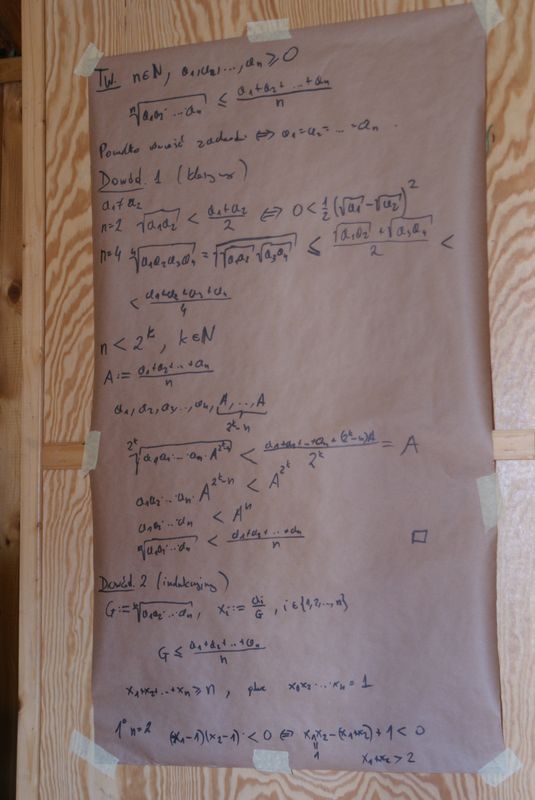 Tw. n∈N, a₁,a₂,...,aₙ ≥ 0
ⁿ√(a₁a₂·...·aₙ) ≤ (a₁+a₂+...+aₙ)/n
Ponadto równość zachodzi ⇔ a₁=a₂=...=aₙ.
Dowód. 1 (klasyczny)
a₁≠a₂
n=2 √(a₁a₂) < (a₁+a₂)/2 ⇔ 0 < ½(√a₁ - √a₂)²
n=4 ⁴√(a₁a₂a₃a₄) = √(√(a₁a₂) √(a₃a₄)) ≤ (√(a₁a₂) + √(a₃a₄))/2 <
< (a₁+a₂+a₃+a₄)/4
n < 2ᵏ, k∈N
A := (a₁+a₂+...+aₙ)/n
a₁, a₂, a₃,...,aₙ, A,...,A
2ᵏ-n
^(2ᵏ)√(a₁a₂·...·aₙ·A^(2ᵏ-n)) < (a₁+a₂+...+aₙ+(2ᵏ-n)A)/2ᵏ = A
a₁a₂·...·aₙ·A^(2ᵏ-n) < A^(2ᵏ)
a₁a₂·...·aₙ < Aⁿ
ⁿ√(a₁a₂·...·aₙ) < (a₁+a₂+...+aₙ)/n □
Dowód. 2 (indukcyjny)
G := ⁿ√(a₁a₂·...·aₙ), xᵢ := aᵢ/G, i∈{1,2,...,n}
G ≤ (a₁+a₂+...+aₙ)/n
x₁+x₂+...+xₙ ≥ n, x₁x₂·...·xₙ = 1
1° n=2 (x₁-1)(x₂-1) < 0 ⇔ x₁x₂-(x₁+x₂)+1 < 0
‖
1 x₁+x₂ > 2